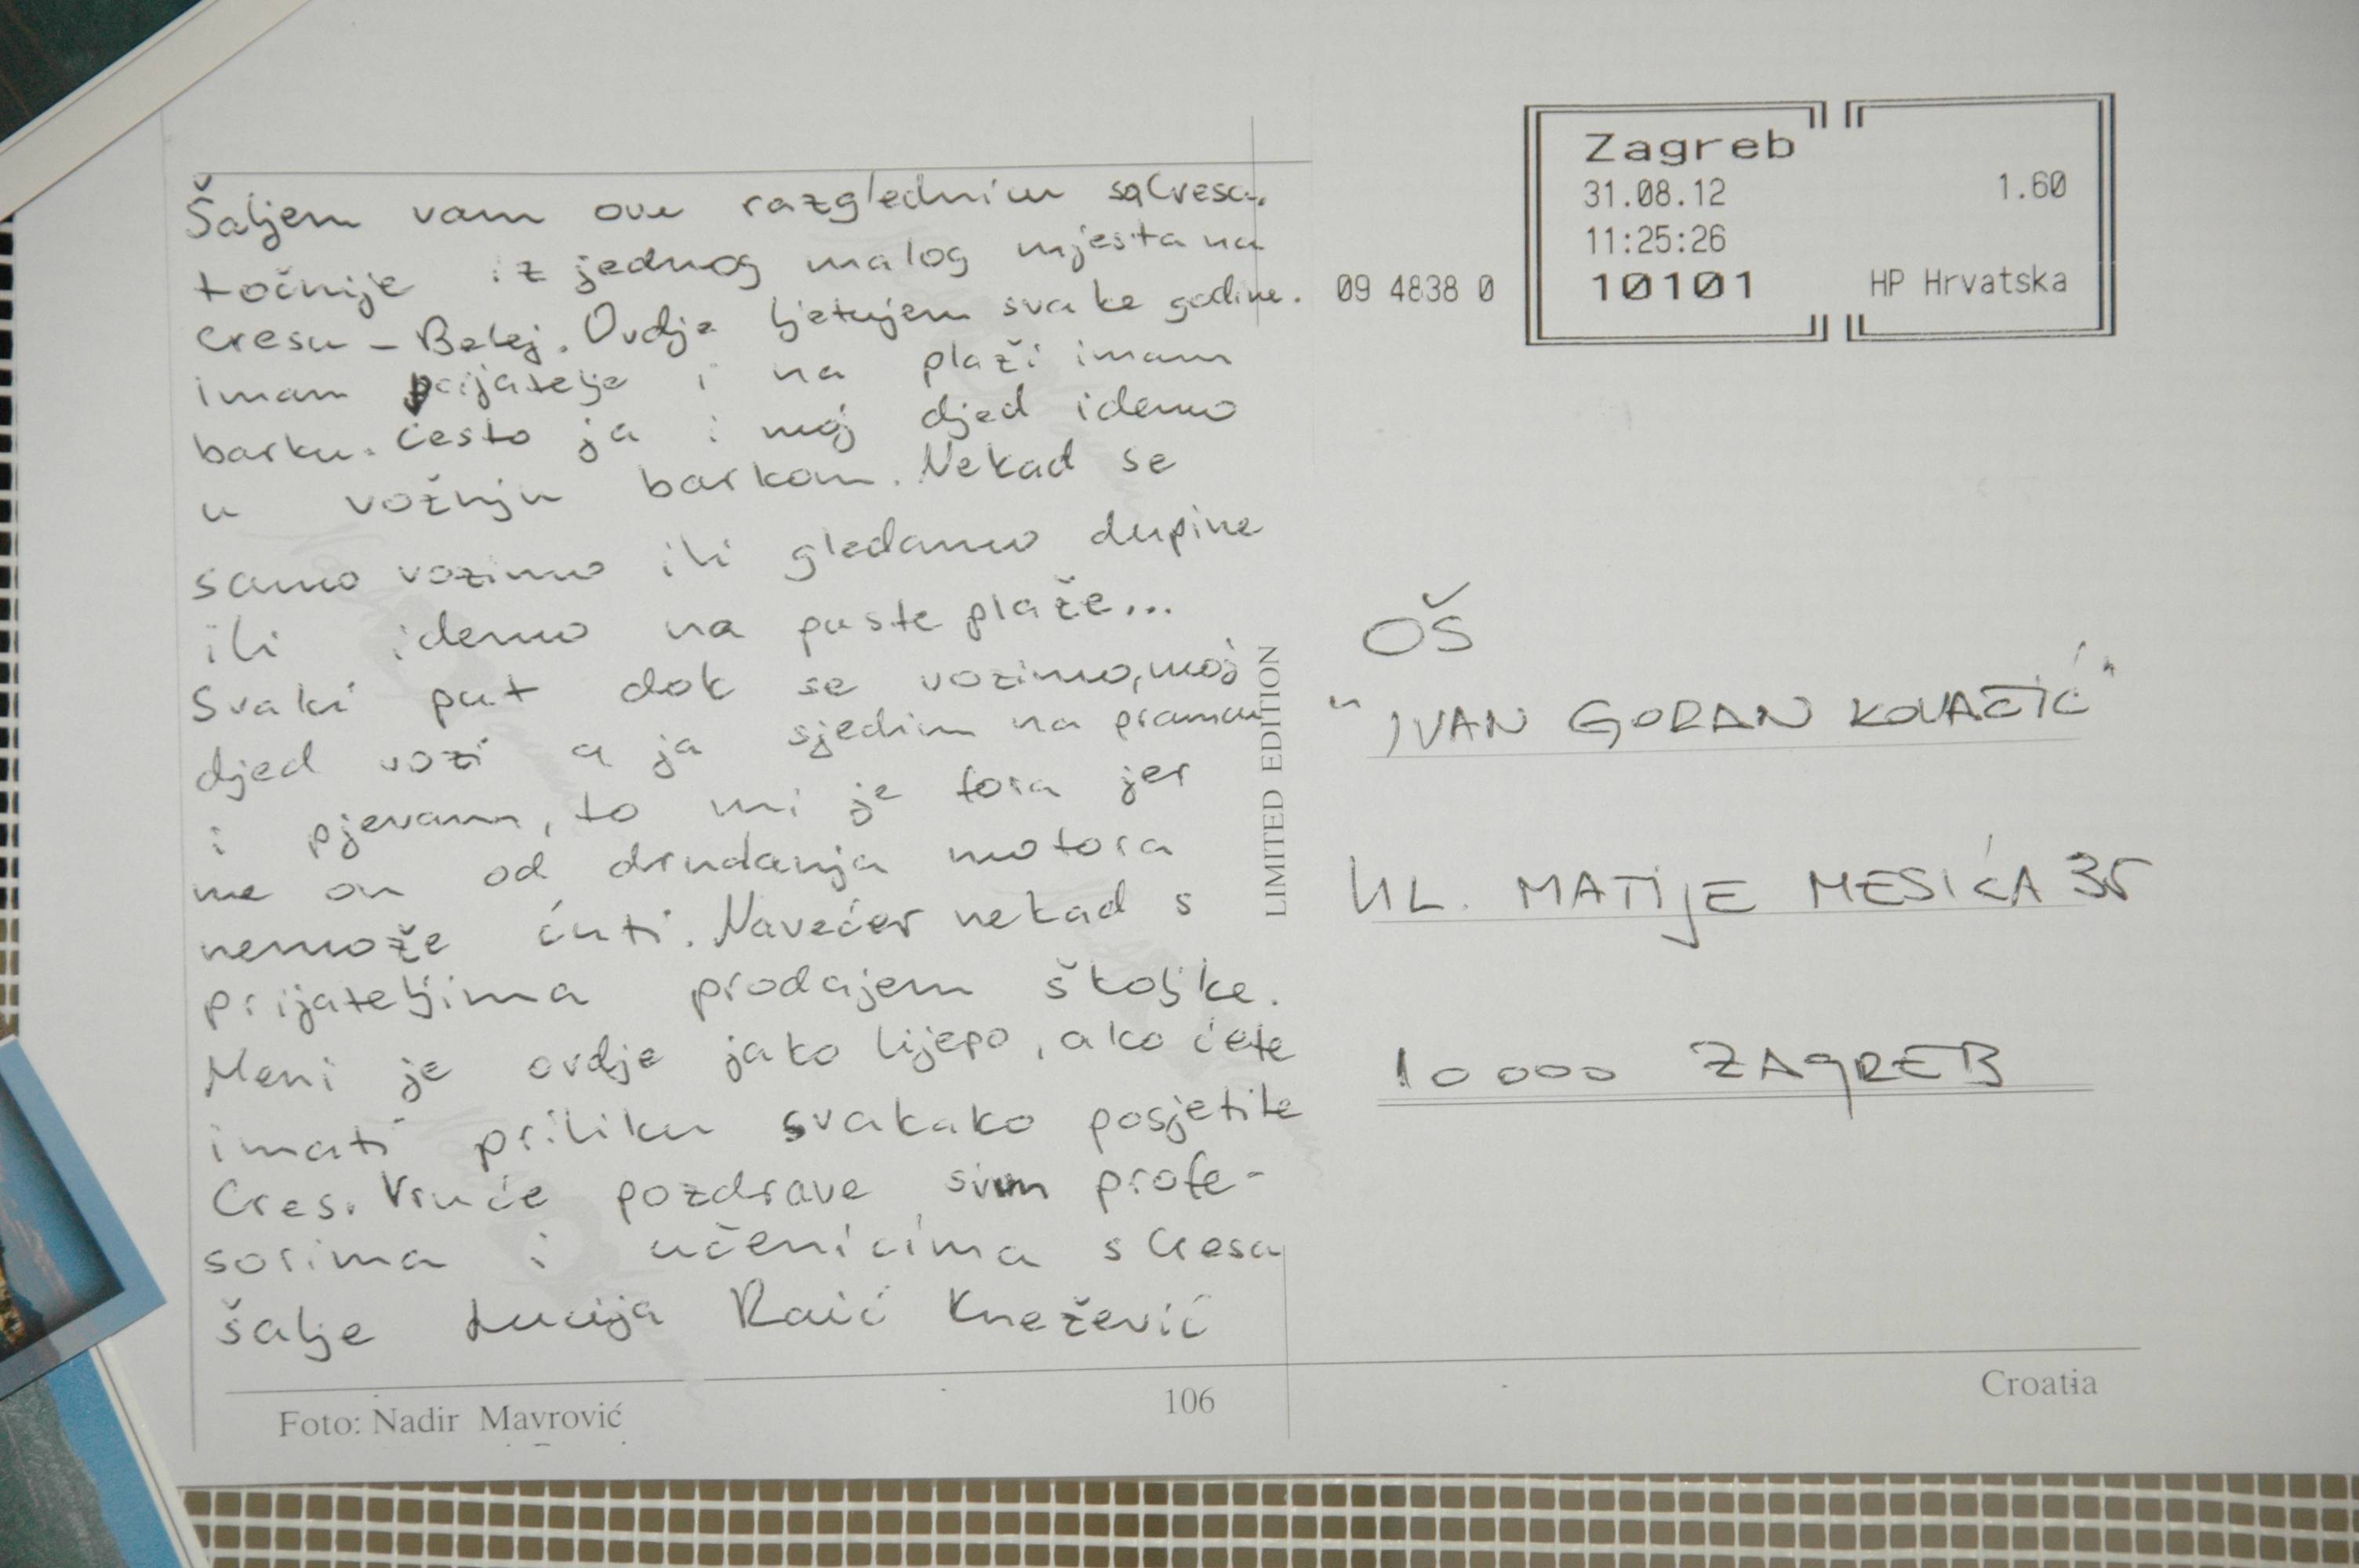 Šaljem vam ovu razglednicu sa Cresa.
točnije iz jednog malog mjesta na
cresu - Belej. Ovdje ljetujem svake godine.
imam prijatelje i na plaži imam
barku. često ja i moj djed idemo
u vožnju barkom. Nekad se
samo vozimo ili gledamo dupine
ili idemo na puste plaže...
Svaki put dok se vozimo, moj
djed vozi a ja sjedim na pramcu
i pjevam, to mi je fora jer
me on od drndanja motora
nemože ćuti. Navećer nekad s
prijateljima prodajem školjke.
Meni je ovdje jako lijepo, ako ćete
imati priliku svakako posjetite
Cres. Vruće pozdrave svim profe-
sorima i učenicima s Cresa
šalje Lucija Raić Knežević
Foto: Nadir Mavrović
106
LIMITED EDITION
Zagreb
31.08.12 1.60
11:25:26
09 4838 0 10101 HP Hrvatska
OŠ
"IVAN GORAN KOVAČIĆ"
UL. MATIJE MESIĆA 35
10000 ZAGREB
Croatia